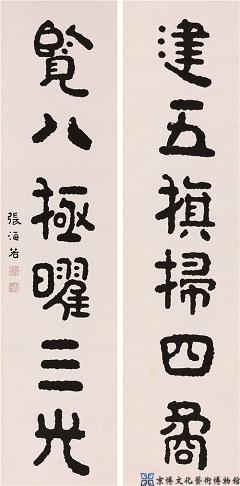 建五旗掃四裔
覽八極曜三光
張海若
京博文化藝術博物館